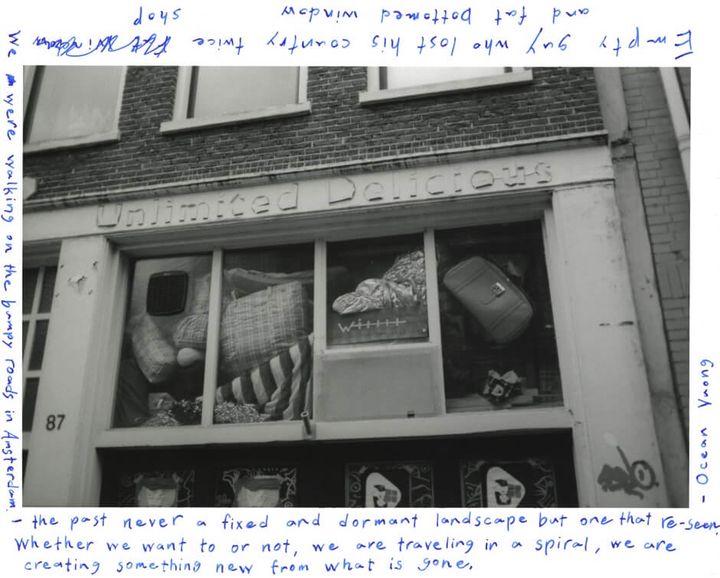 Empty guy who lost his country twice
and fat bottomed window shop
We were walking on the bumpy roads in Amsterdam.
Unlimited Delicious
87
- the past never a fixed and dormant landscape but one that re-seen.
Whether we want to or not, we are traveling in a spiral, we are
creating something new from what is gone.
- Ocean Vuong